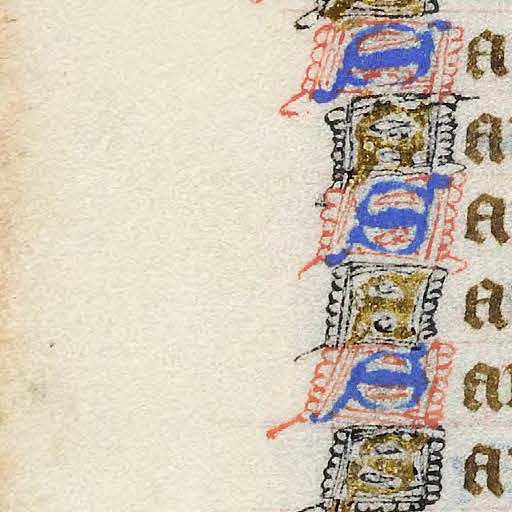 Sa
Sa
Sa
Sa
Sa
Sa